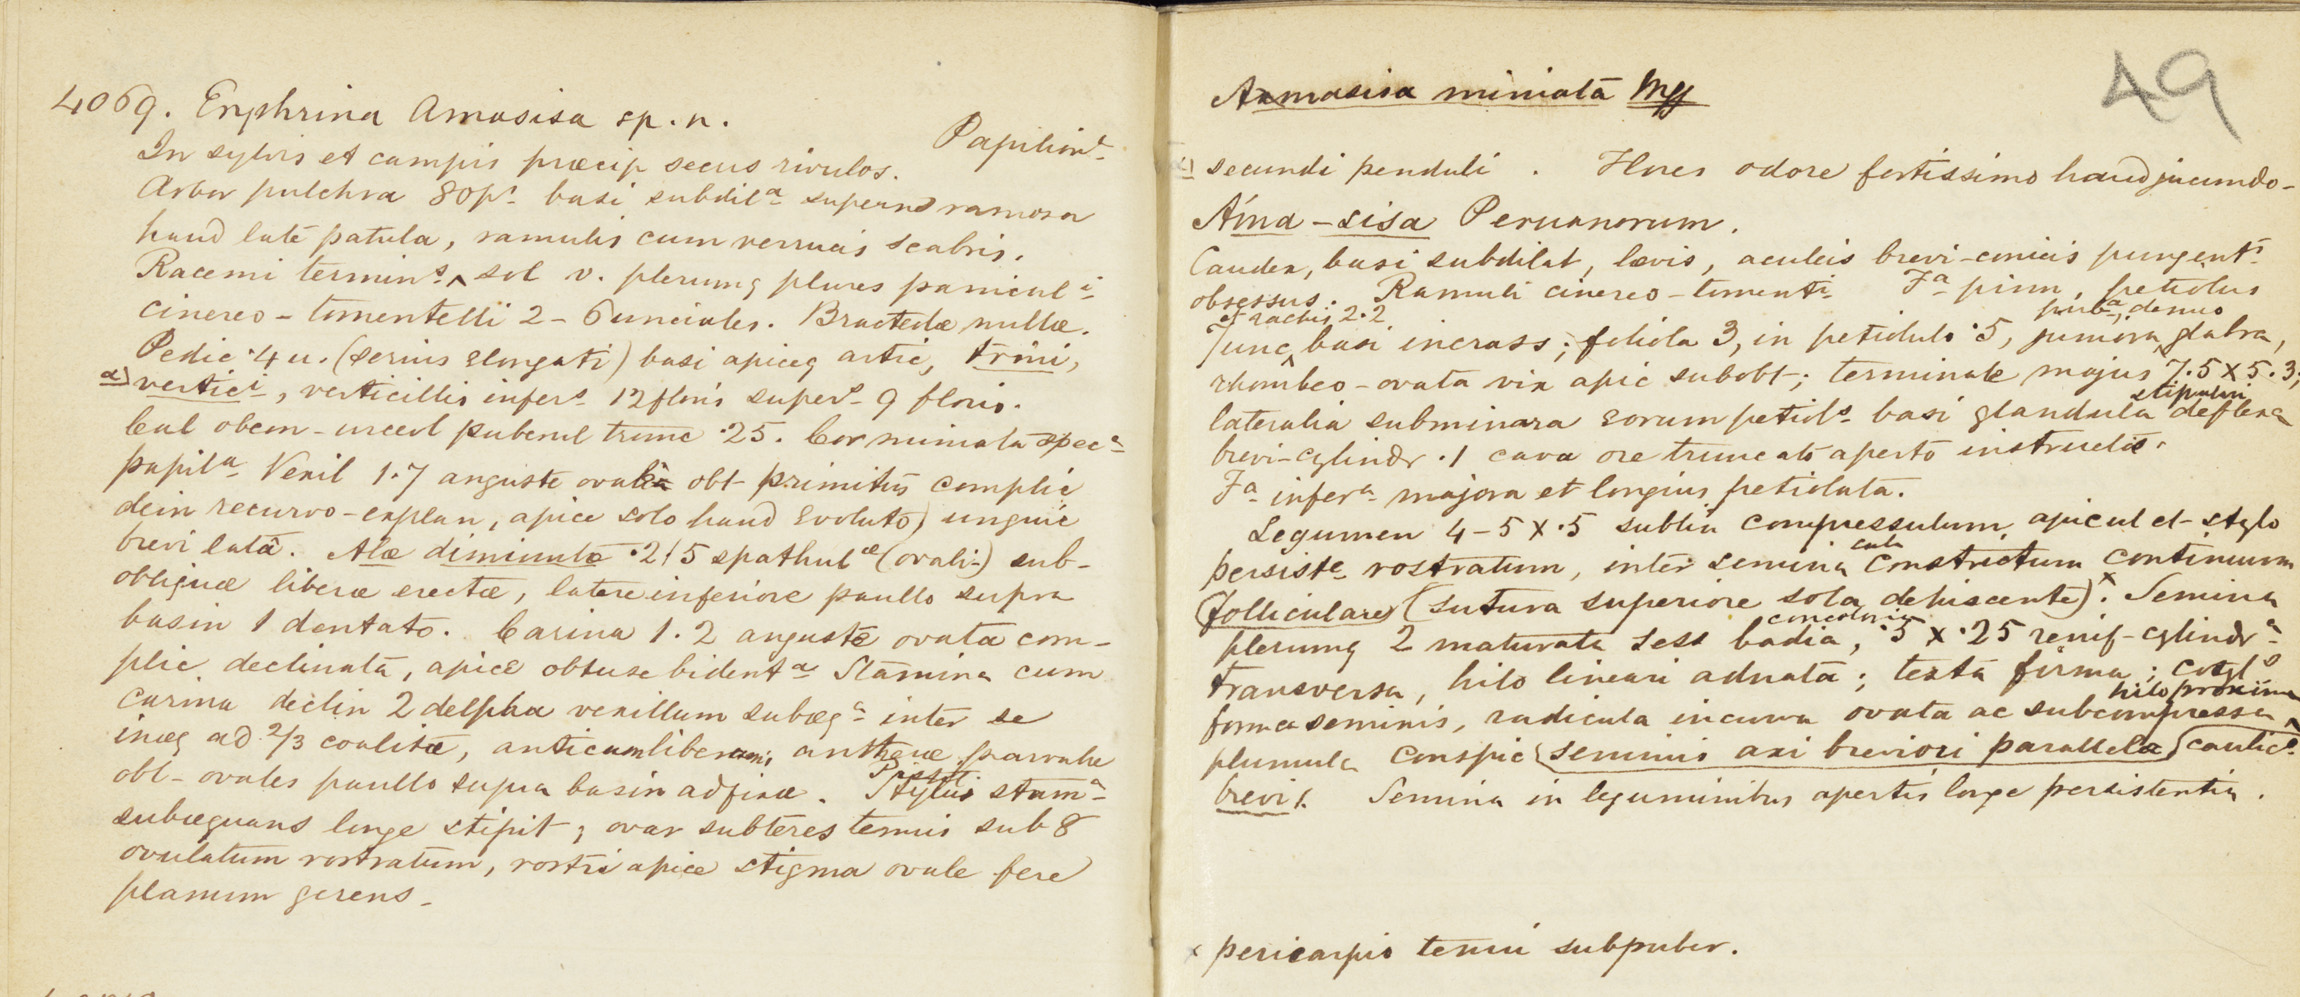 4069. Erythrina Amasisa sp. n.
Papilion^s
In sylvis et campis præcip secus rivulos.
Arbor pulchra 80p^s basi subdil^a superne ramosa
haud late patula, ramulis cum verrucis scabris.
Racemi termin^s ^ sol v. plerumq plures panicul^i
cinereo-tomentelli 2-6unciales. Bracteolæ nullæ.
Pedic ·4 u. (serius elongati) basi apiceq artic, trini,
a) vertic^i, verticillis infer^s 12floris super^s 9 floris.
Cal obcon-urceol puberul trunc ·25. Cor miniata spec^a
papil^a Vexil 1·7 anguste ovale obt primitus complic
dein recurvo-explan, apice solo haud evoluto, ungue
brevi lata. Alæ diminutæ ·215 spathul^æ (ovali-) sub-
obliquæ liberæ erectæ, latere inferiore paullo supra
basin 1 dentato. Carina 1·2 anguste ovata com-
plic declinata, apice obtuse bident^a Stamina cum
carina declin 2delpha vexillum subæq^a inter se
inæq ad 2/3 coalita, anticum liberum; antheræ parvulæ
obl-ovales paullo supra basin adfixæ. Stylus Pistil stam^a
subæquans longe stipit; ovar subteres tenuis sub 8
ovulatum rostratum, rostri apice stigma ovale fere
planum gerens.
Amasisa miniata Mſſ
49
a) secundi penduli. Flores odore fortissimo haud jucundo.
Ama-sisa Peruanorum.
Caudex, basi subdilat, lævis, aculeis brevi-conicis pungent^s
obsessus. Ramuli cinereo-toment^i F^a pinn, petiolus
et rachis 2·2 pub^a, demus
7unc ^ basi incrass; foliola 3, in petiolulo ·5, juniora ^ glabra,
rhombeo-ovata vix apic subobt; terminale majus 7·5 x 5·3;
stipulin
lateralia subminora eorum petiol^s basi glandula deflexa
brevi-cylindr ·1 cava ore truncato aperto instructis.
F^a infer^a majora et longius petiolata.
Legumen 4-5 x ·5 sublin compressulum, apicul et stylo
persist^e rostratum, inter semina sub constrictum continuum
folliculare (sutura superiore sola dehiscente).x Semina
plerumq 2 maturata sess badia, concoloria ·5 x ·25 renif-cylindr^a
transversa, hilo lineari adnata; testa firma; cotyl^o
forma seminis, radicula incurva ovata ac subcompressa ^ hilo proxima
plumula conspic (seminis axi breviori parallela) caulic^o
brevi. Semina in leguminibus apertis longe persistentia.
x pericarpio tenui subpuber.